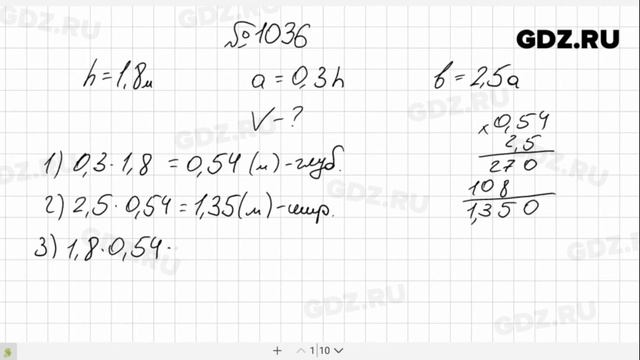 №1036
GDZ.RU
h = 1,8м   a = 0,3h   b = 2,5a
V - ?
1) 0,3 · 1,8 = 0,54 (м) - глуб.
2) 2,5 · 0,54 = 1,35 (м) - шир.
3) 1,8 · 0,54 ·
× 0,54
2,5
270
108
1,350
1 | 10